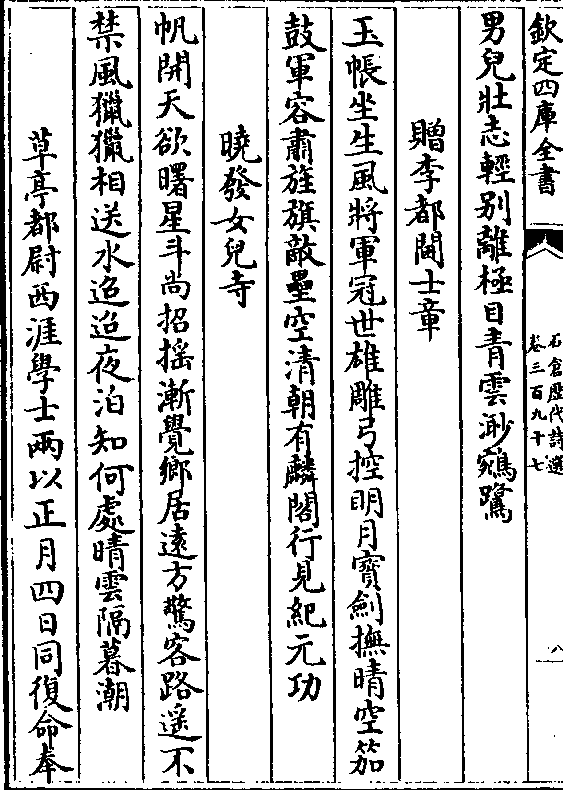 欽定四庫全書
石倉歴代詩選
卷三百九十七
八
男兒壯志輕别離極目青雲渺鵷鷺
贈李都閫士章
玉帳坐生風將軍冠世雄雕弓控明月寳劍撫晴空笳
鼓軍容肅旌旗敵壘空清朝有麟閣行見紀元功
曉發女兒寺
帆開天欲曙星斗尚招揺漸覺鄉居逺方驚客路遥不
禁風獵獵相送水迢迢夜泊知何處晴雲隔暮潮
草亭都尉西涯學士兩以正月四日同復命奉